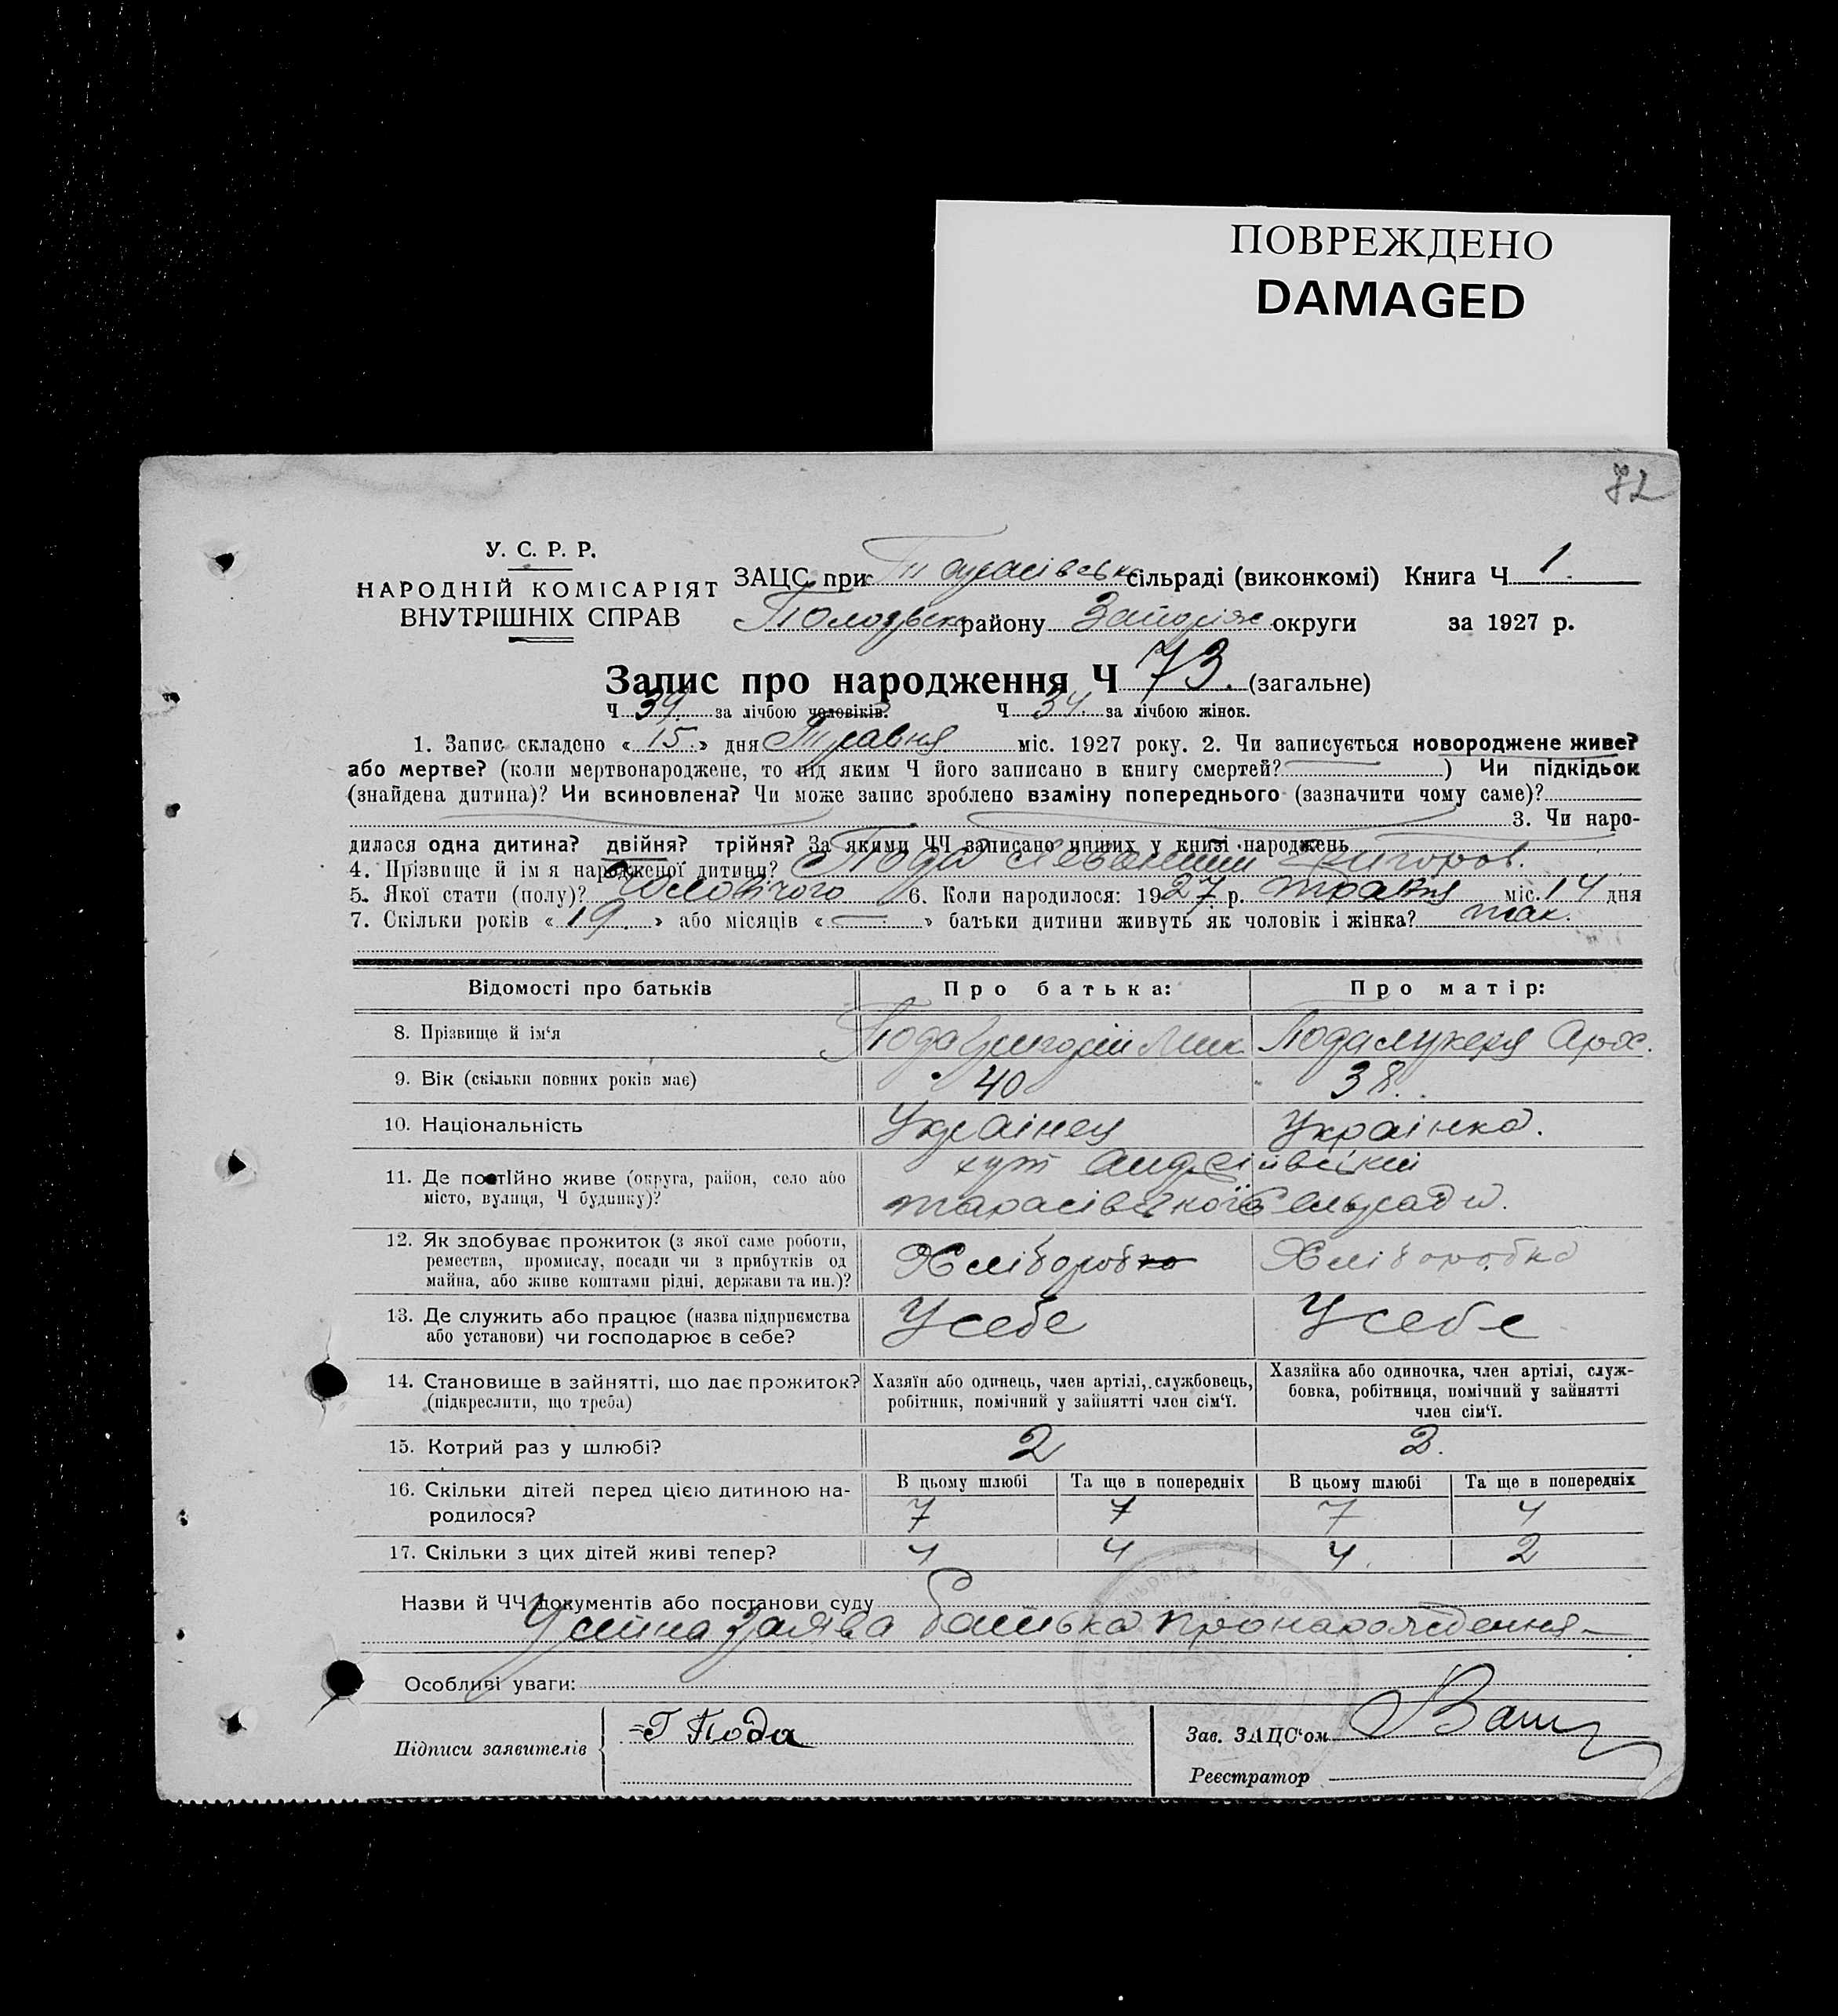 ПОВРЕЖДЕНО
DAMAGED
72
У. С. Р. Р.
НАРОДНІЙ КОМІСАРІЯТ
ВНУТРІШНІХ СПРАВ
ЗАЦС при Тарасівськ сільраді (виконкомі) Книга Ч 1.
Пологівськ району Запоріж округи за 1927 р.
Запис про народження Ч 73. (загальне)
Ч 39. за лічбою чоловіків. Ч 34. за лічбою жінок.
1. Запис складено « 15. » дня Травня міс. 1927 року. 2. Чи записується новороджене живе?
або мертве? (коли мертвонароджене, то під яким Ч його записано в книгу смертей? ) Чи підкідьок
(знайдена дитина)? Чи всиновлена? Чи може запис зроблено взаміну попереднього (зазначити чому саме)?
3. Чи наро-
дилася одна дитина? двійня? трійня? За якими ЧЧ записано инших у книзі народжень
4. Прізвище й ім я народженої дитини? Пода Григоров.
5. Якої стати (полу)? Чоловічого 6. Коли народилося: 1927 р. травня міс. 14 дня
7. Скільки років « 19. » або місяців « — » батьки дитини живуть як чоловік і жінка? так.
Відомості про батьків Про батька: Про матір:
8. Прізвище й ім'я Пода Григорій Мик Пода Лукеря Арх.
9. Вік (скільки повних років має) 40 38.
10. Національність Українец Українка.
11. Де постійно живе (округа, район, село або хут Андріівській
місто, вулиця, Ч будинку)? тарасівської Сельради.
12. Як здобуває прожиток (з якої саме роботи,
ремества, промислу, посади чи з прибутків од Хлібороб Хліборобка
майна, або живе коштами рідні, держави та ин.)?
13. Де служить або працює (назва підприємства У себе У себе
або установи) чи господарює в себе?
14. Становище в зайнятті, що дає прожиток? Хазяїн або одинець, член артілі, службовець, Хазяйка або одиночка, член артілі, служ-
(підкреслити, що треба) робітник, помічний у зайнятті член сім'ї. бовка, робітниця, помічний у зайнятті
член сім'ї.
15. Котрий раз у шлюбі? 2 2.
16. Скільки дітей перед цією дитиною на- В цьому шлюбі Та ще в попередніх В цьому шлюбі Та ще в попередніх
родилося? 7 7 7 4
17. Скільки з цих дітей живі тепер? 4 4 4. 2
Назви й ЧЧ документів або постанови суду
Усна заява батька про народждення
Особливі уваги:
Підписи заявителів Г Пода
Зав. ЗАЦС'ом
Реєстратор